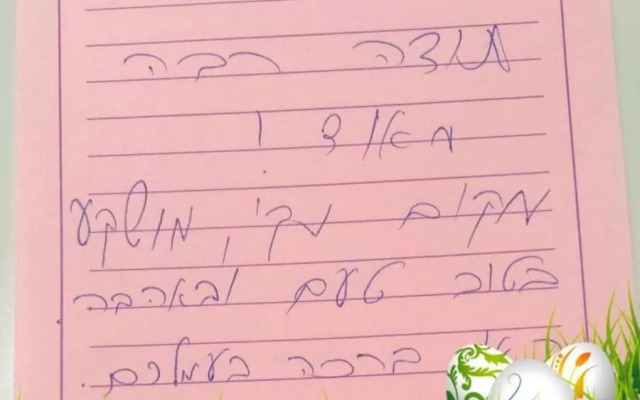 תודה רבה
מאוד !
מקום נקי, מושקע
בטוב טעם ובאהבה
ברכה בעמלכם.